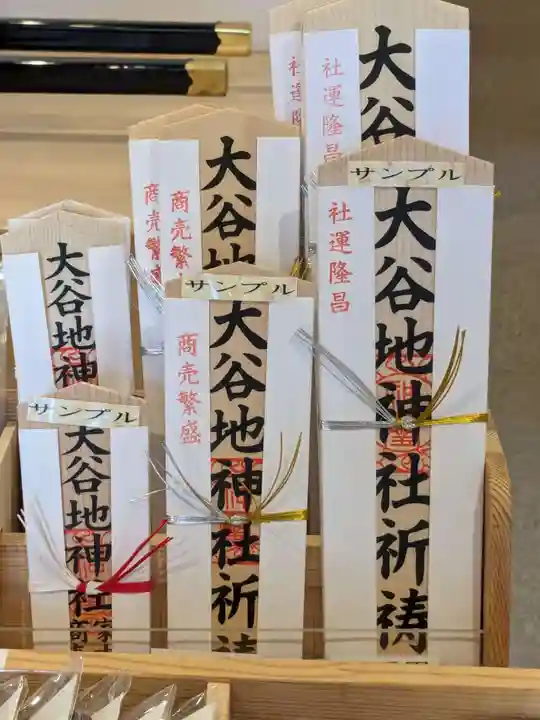 社運隆昌
大谷
サンプル
社運隆昌
大谷地神社祈祷
商売繁
大谷地
サンプル
商売繁盛
大谷地神社祈祷
大谷地神
サンプル
大谷地神社